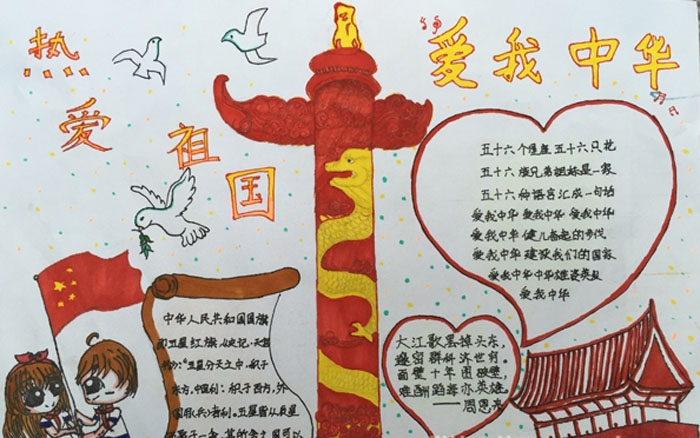 热爱祖国
爱我中华
五十六个星座五十六只花
五十六族兄弟姐妹是一家
五十六种语言汇成一句话
爱我中华 爱我中华 爱我中华
爱我中华健儿奋起的步伐
爱我中华 建设我们的国家
爱我中华中华雄姿英发
爱我中华
大江歌罢掉头东,
邃密群科济世穷。
面壁十年图破壁,
难酬蹈海亦英雄。
——周恩来
中华人民共和国国旗
五星红旗,《史记·天官
书》:"五星分天之中,积于
东方,中国利;积于西方,外
国用(兵)者利。五星皆从辰星
而聚于一舍,其所舍之国可以